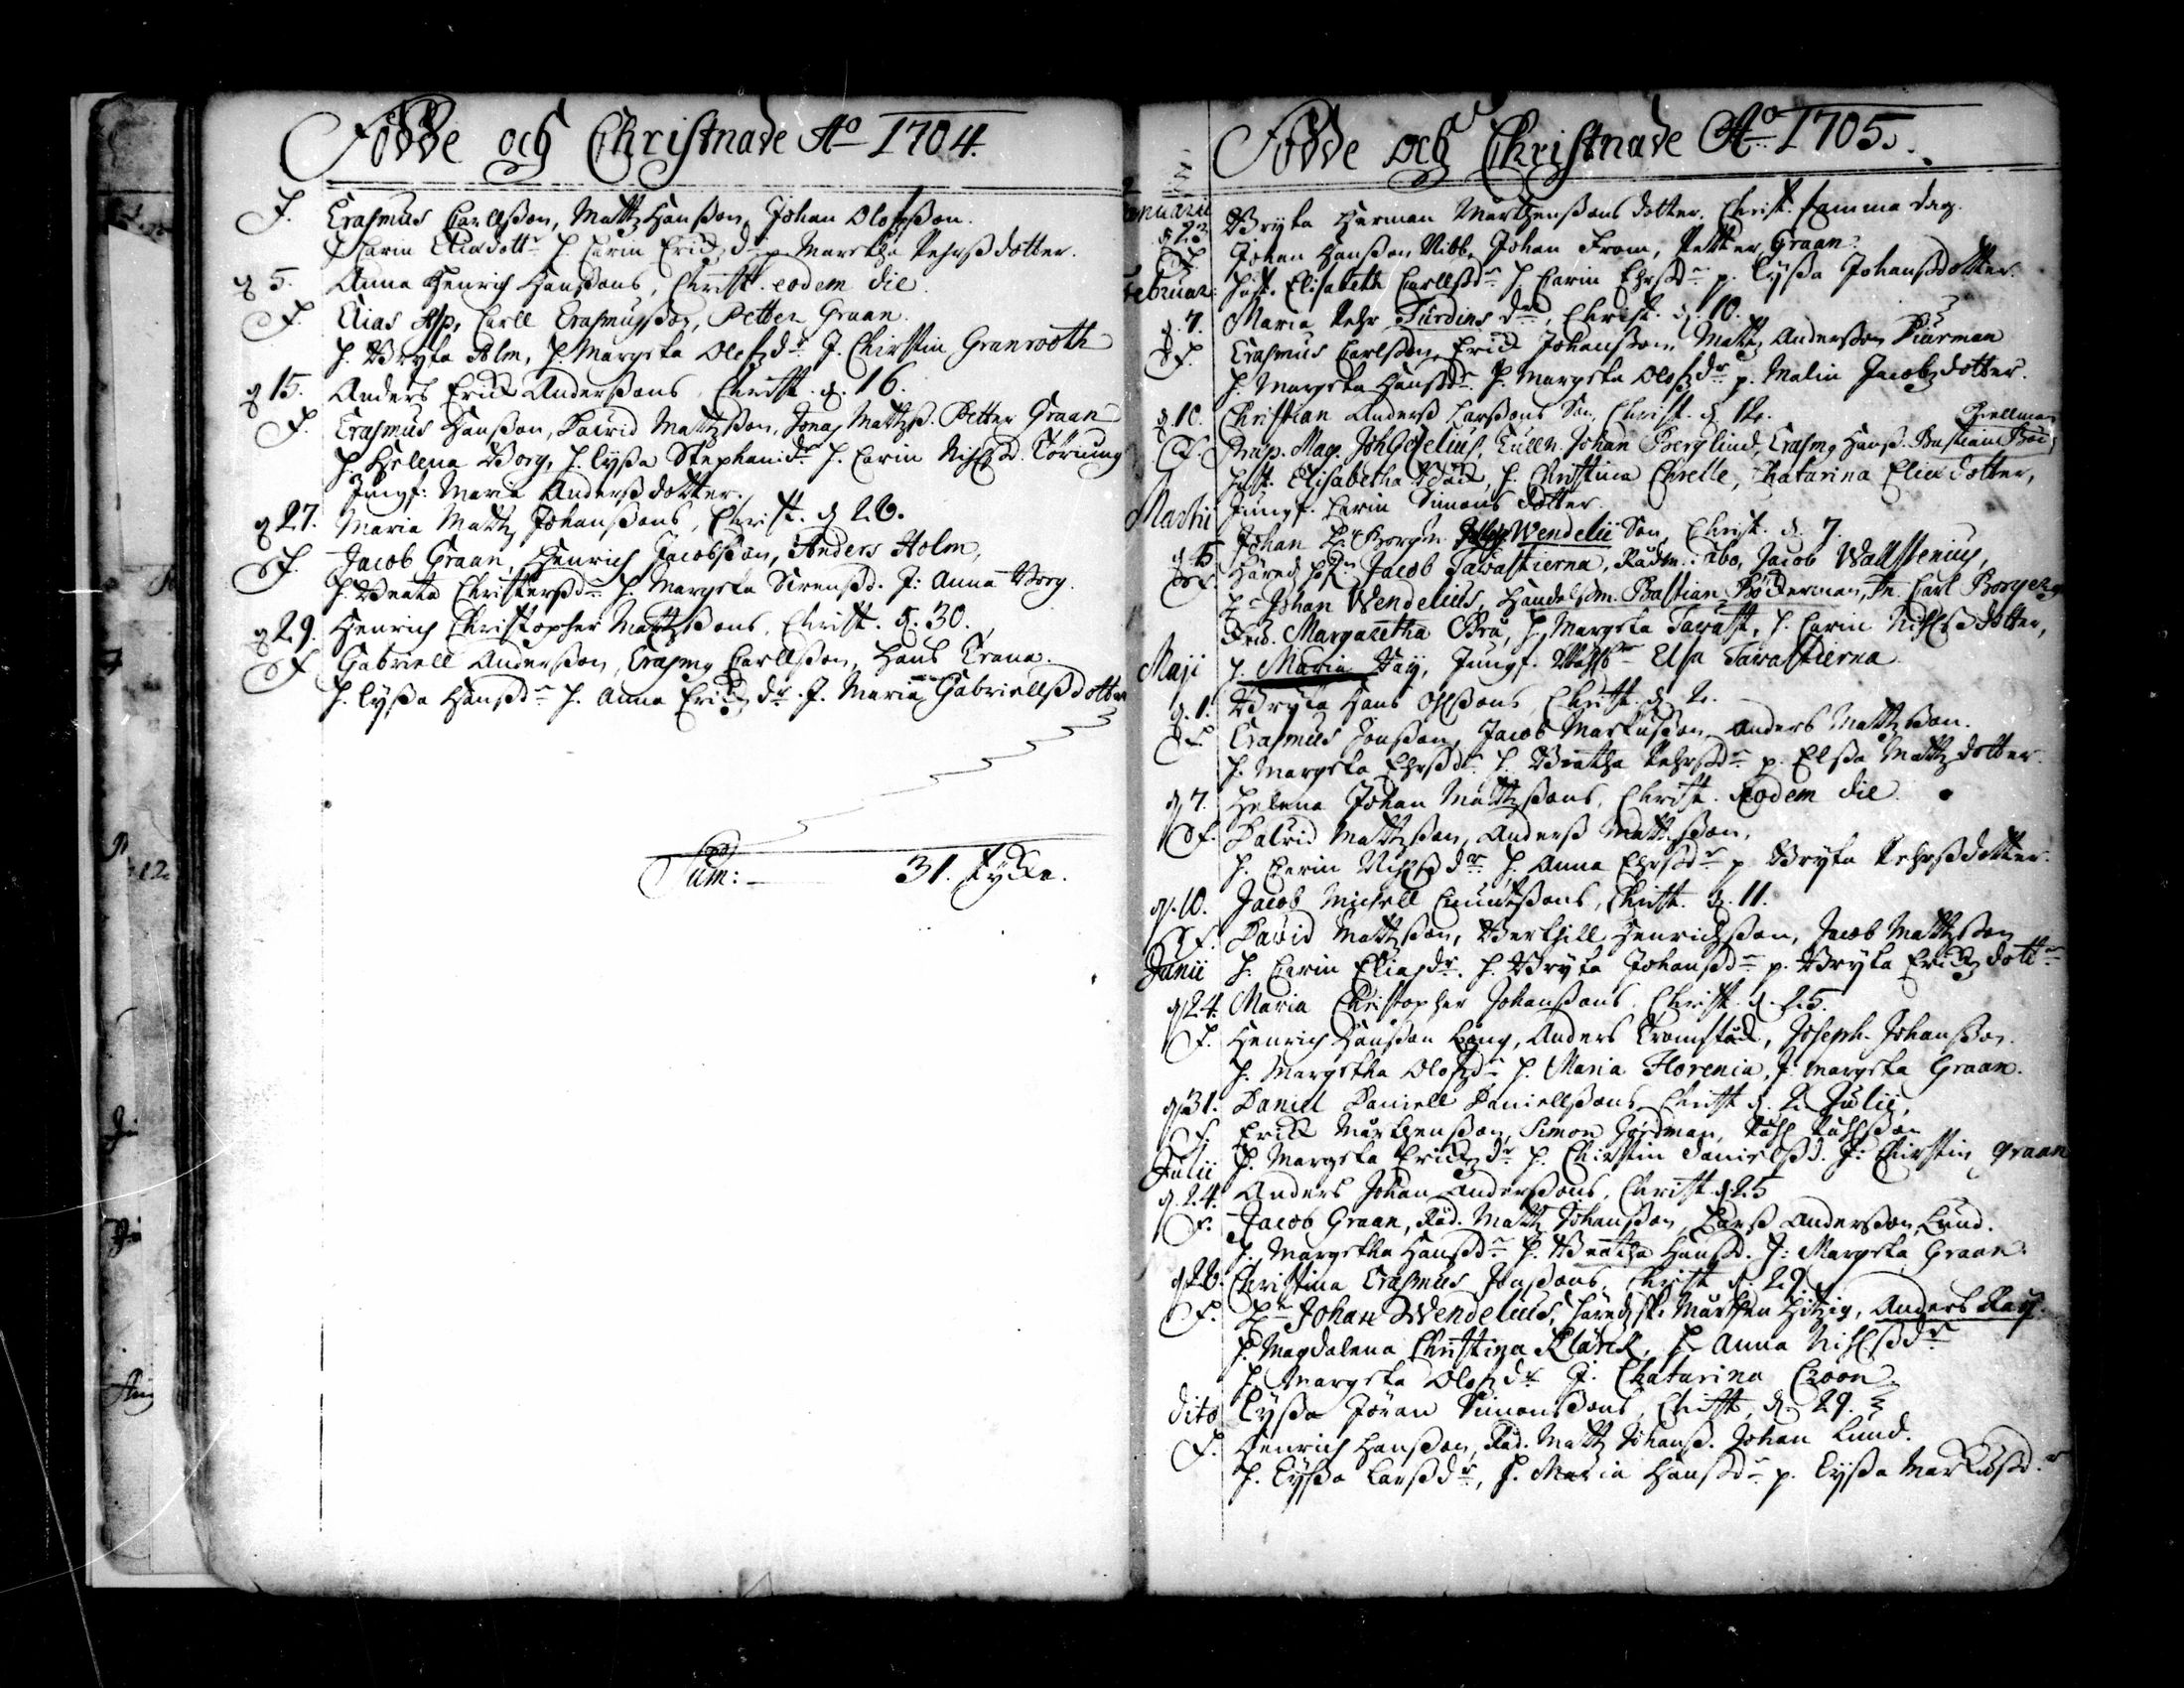 Födde och Christnade Aō 1704.
F. Erasmus Carlsson, Mattz Hansson, Johan Olofsson.
H. Carin Eliædottr H. Carin Erichzdr p. Margetha Pehrsdotter.
d. 5. Anna Henrich Hanssons, Christ. eodem die.
F. Elias Alp, Carll Erasmusson, Petter Graan.
H. Bryta Alm, H. Margeta Olofzdr J. Chirstin Granrooth
d. 15. Anders Erich Anderssons, Christ. d. 16.
F. Erasmus Hansson, David Mattzson, Jonas Mattzs. Petter Graan
H. Helena Borg, H. Lyssa Stephansdr H. Carin Nilsd.
Jungf: Maria Andersdotter.
d 27. Maria Mattz Johanssons, Christ. d 28.
F. Jacob Graan, Henrich Jacobsson, Anders Holm,
H. Beata Christersdr H. Margeta Sirensd. J: Anna Borg.
d 29. Henrich Christopher Mattzsons, Christ. d. 30.
F Gabriell Andersson, Erasmg Carllsson, Hans Trana.
H. Lyssa Hansdr H. Anna Erichzdr J. Maria Gabriellsdotter
Sum: 31. stycke.
Födde och Christnade Aō 1705.
Januarii Bryta Herman Mårtenssons dotter. Christ. samma dag.
d 23.
F. Johan Hansson Nibb, Johan From, Petter Graan.
Februar: Hust. Elisabeth Carllsdr H. Carin Ehrsdr p. Lyssa Johansdotter.
d. 7. Maria Pehr Turdins dr, Christ. d. 10.
F. Erasmus Carlsson, Erich Johansson, Mattz Andersson
H. Margeta Hansdr H. Margeta Olofzdr p. Malin Jacobzdotter.
d. 10. Christian Anders Larssons Son, Christ. d 12.
F. Præp. Mag. Joh Gezelius, Tulln. Johan Berglind, Erasmg Hanss. Bastian
Hust. Elisabetha, H. Christina Chrelle, Chatarina Eliædotter,
Martii Jungf. Carin Simons dotter.
d 6. Johan Wendelii Son, Christ. d. 7.
F. Häredzhöf. Jacob Tawastierna, Rådm. i Åbo, Jacob Wallstenius,
Hr Johan Wendelius, Handelsm. Bastian Böckerman, Carl Borgerg
Fru. Margaretha Bru, H. Margeta Tawast, H. Carin Nilsdotter,
Maji H. Maria Haij, Jungf. Elsa Tawastierna
d. 1. Bryta Hans Olssons, Christ. d 2.
F. Erasmus Jonsson, Jacob Markusson, Anders Mattzson.
H. Margeta Ehrsdr H. Beatha Pehrsdr p. Elssa Mattzdotter
d 7. Helena Johan Mattzsons, Christ. Eodem die.
F. David Mattzson, Anders Mattzson,
H. Carin Nilsdr H. Anna Ehrsdr p Bryta Pehrsdotter.
d. 10. Jacob Michell Knutssons, Christ. d. 11.
F. David Mattzson, Bertill Henrichsson, Jacob Mattzson
Junii H. Carin Eliædr. H. Bryta Johansdr p. Bryta Erichzdottr
d 24. Maria Christopher Johanssons. Christ. d. 25.
F. Henrich Hansson Bång, Anders Cromstedt, Joseph Johansson.
H. Margetha Olofzdr H. Maria Florenia, J. Margeta Graan.
d 31. Daniel Daniell Daniellssons, Christ d. 2. Julii.
F. Erich Mårtensson, Simon Hordman, Påhl Påhlsson
Julii H. Margeta Erichzdr H. Chirstin Danielsd. J: Chirstin Graan
d. 24. Anders Johan Anderssons, Christ. d 25
F. Jacob Graan, Råd. Mattz Johansson, Larss Andersson Lund.
H. Margetha Hansdr H. Beatha Hansd. J: Margeta Graan.
d 28. Christina Erasmus Jonssons, Christ. d. 29.
F. Hr Johan Wendelius, Häredzsk. Mårthen Hitzig, Anders Kaij.
H. Magdalena Christina Klärck, H. Anna Nilsdr
H. Margeta Olofzdr J. Chatarina Croon.
dito Lyssa Jöran Simonssons, Christ. d. 29.
F. Henrich Hansson, Råd. Mattz Johanss. Johan Lund.
H. Lyssa Larsdr, H. Maria Hansdr p. Lyssa Markusd.r